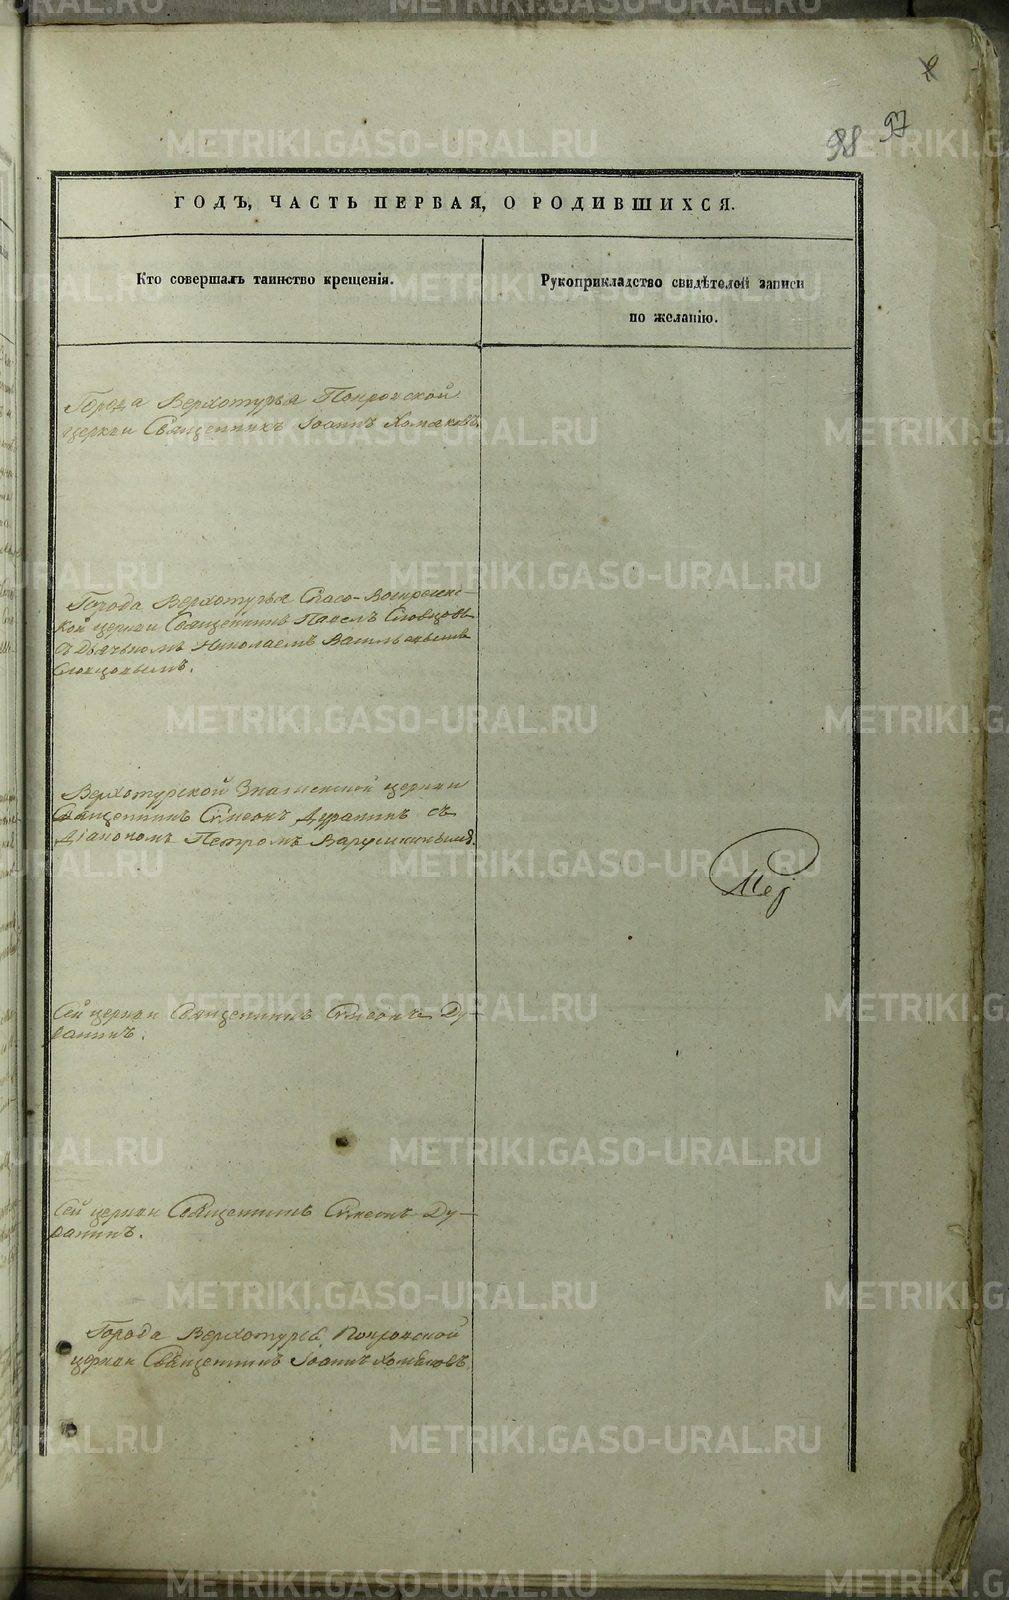 98 97
ГОДЪ, ЧАСТЬ ПЕРВАЯ, О РОДИВШИХСЯ.
Кто совершалъ таинство крещенія.
Рукоприкладство свидѣтелей записи
по желанію.
Города Верхотурья Покровской
церкви Священникъ Іоаннъ Хомяковъ.
Города Верхотурья Спасо-Воскресенс-
кой церкви Священникъ Павелъ Словцовъ
съ Дьячкомъ Николаемъ Васильевымъ
Словцовымъ.
Верхотурской Знаменской церкви
Священникъ Симеонъ Дурапинъ съ
Діакономъ Петромъ Варушкинымъ.
Сей церкви Священникъ Симеонъ Ду-
рапинъ.
Сей церкви Священникъ Симеонъ Ду-
рапинъ.
Города Верхотурья Покровской
церкви Священникъ Іоаннъ Хомяковъ.
METRIKI.GASO-URAL.RU